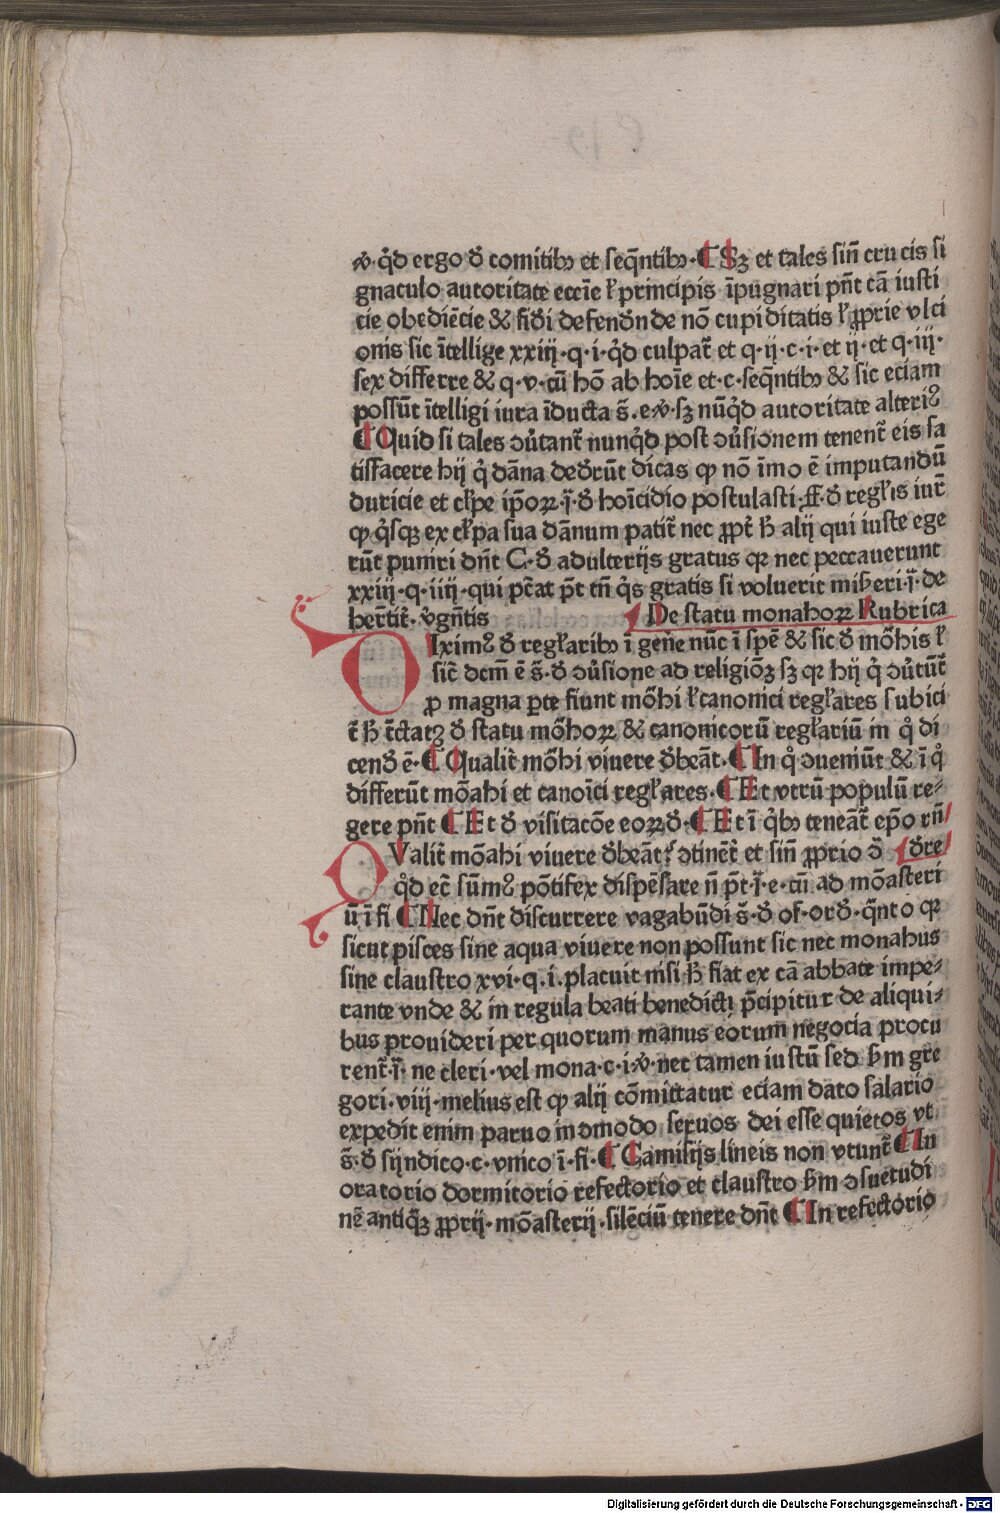 ꝟ· q̇d ergo đ comitibꝫ et seq̄ntibꝫ· ¶ Sꝫ et tales sin̄ crucis si
gnaculo autoritate eccīe ł principis īpugnari pn̄t cā iusti
cie obediēcie & fiđi defendn̄de nō cupiditatis ł ꝓprie vlci
onis sic ītellige xxiij·q·i·q̇d culpat̄ et q·ij·c·i·et ij·et q·iij·
sex differre & q·v·cū hō ab hoīe et·c·seq̄ntibꝫ & sic eciam
possūt ītelligi iura īducta s̄·e·ꝟ·sꝫ nūq̇d autoritate alteriꝰ
¶ Quid si tales ↄu̇tant̄ nunq̇d post ↄu̇sionem tenent̄ eis sa
tisfacere hij q̇ dāna deđrūt dicas ꝙ nō īmo ē imputandū
duricie et cłpe ip̄oꝝ·j̄·đ hoīcidio postulasti·ff·đ regłis iur̄
ꝙ q̇sqꝫ ex cłpa sua dānum patit̄ nec ꝓpt̄ ħ alij qui iuste ege
rūt puniri dn̄t C·đ adulterijs gratus qꝛ nec peccauerunt
xxiij·q·iiij·qui pc̄at pt̄ tn̄ q̇s gratis si voluerit miƀeri·j̄·de
her̄tit̄· v̇gn̄tis ¶ De statu monahoꝝ Rubrica
DIximꝰ đ regłaribꝫ ī gen̄e nūc ī spē & sic đ mōhis ł
sic̄ dcm̄ ē s̄·đ ↄu̇sione ad religiōꝫ sꝫ qꝛ hij q̇ ↄu̇tūt̄
ꝓ magna ꝑte fiunt mōhi ł canonici regłares subici
t̄ ħ t̄ctatꝫ đ statu mōhoꝝ & canonicorū regłariū in q̇ di
cenđ ē· ¶ Qualit̄ mōhi viuere đbeāt· ¶ In q̇ ↄueniūt & ī q̇
differūt mōahi et canoīci regłares· ¶ Et vtrū populū re⸗
gere pn̄t ¶ Et đ visitacōe eoꝝđ· ¶ Et ī q̇bꝫ teneāt̄ ep̄o rn̄
QValit̄ mōahi viuere đbeāt? ↄtinēt̄ et sin̄ ꝓprio ↄ̄ đre
q̇d ec̄ sūmꝰ pōtifex dispēsare n̄ pt̄·j̄·e·cū ad mōasteri
ū ī fi ¶ Nec dn̄t discurrere vagabūdi s̄·đ of·orđ·q̄nto qꝛ
sicut pisces sine aqua viuere non possunt sic nec monahus
sine claustro xvi·q·i·placuit nı̄si ħ fiat ex cā abbate impe⸗
rante vnde & in regula beati benedicti p̄cipitur de aliqui⸗
bus prouideri per quorum manus eorum negocia procu
rent̄·j̄·ne cleri·vel mona·c·i·ꝟ·nec tamen iustū sed ƀm gre
gori·viij·melius est ꝙ alij cōmittatur eciam dato salario
expedit enim paruo inↄmodo seruos dei esse quietos vt
s̄·đ sijndico·c·vnico ī·fi·¶ Camisijs lineis non vtunt̄ ¶ In
oratorio dormitorio refectorio et claustro ƀm ↄsuetudi
nē antiq̄ꝫ ꝓprij·mōasterij·silēciū tenere dn̄t ¶ In refectorio
Digitalisierung gefördert durch die Deutsche Forschungsgemeinschaft - DFG